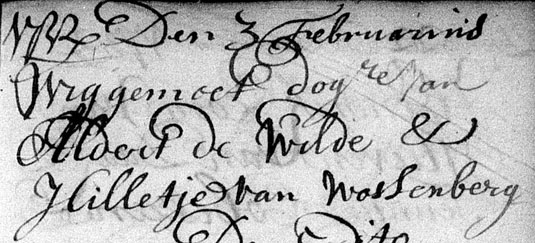 Den 3 Februarius
Wiggemoet dogtre van
Aldert de Wilde &
Hilletje van Wossenberg
Den Dito